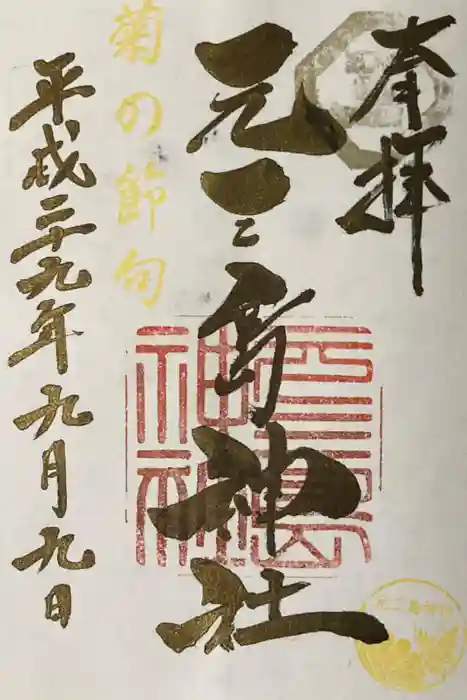 奉拝
元三島神社
菊の節句
平成二十九年九月九日
元三島神社